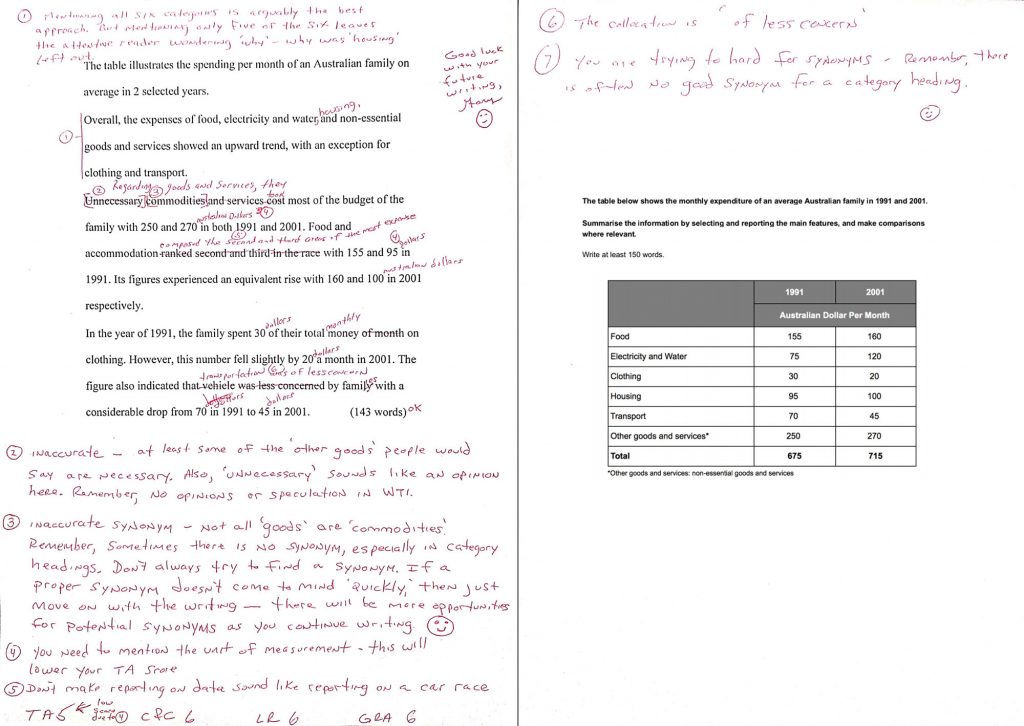 ① Mentioning all six categories is arguably the best
approach. But mentioning only five of the six leaves
the attentive reader wondering 'why' – why was 'housing'
left out.
Good luck
with your
future
writing,
The table illustrates the spending per month of an Australian family on
average in 2 selected years.
housing,
Overall, the expenses of food, electricity and water, and non-essential
①
goods and services showed an upward trend, with an exception for
clothing and transport.
② Regarding ③ goods and services, they
Unnecessary commodities and services cost most of the budget of the
took
Australian Dollars ④
family with 250 and 270 in both 1991 and 2001. Food and
⑤
composed the second and third areas of the most expense
④ dollars
accommodation ranked second and third in the race with 155 and 95 in
Australian dollars
1991. Its figures experienced an equivalent rise with 160 and 100 in 2001
respectively.
dollars monthly
In the year of 1991, the family spent 30 of their total money of month on
dollars
clothing. However, this number fell slightly by 20 a month in 2001. The
transportation ⑥ was of less concern
figure also indicated that vehicle was less concerned by family with a
ies
dollars dollars
considerable drop from 70 in 1991 to 45 in 2001. (143 words) OK
② inaccurate – at least some of the 'other goods' people would
say are necessary. Also, 'unnecessary' sounds like an opinion
here. Remember, no opinions or speculation in WT1.
③ inaccurate synonym – not all 'goods' are 'commodities'.
Remember, sometimes there is no synonym, especially in category
headings. Don't always try to find a synonym. If a
proper synonym doesn't come to mind 'quickly,' then just
move on with the writing – there will be more opportunities
for potential synonyms as you continue writing.
④ you need to mention the unit of measurement – this will
lower your TA score
⑤ Don't make reporting on data sound like reporting on a car race
TA5 low score due to ④ C&C 6 LR 6 GRA 6
⑥ The collocation is 'of less concern'
⑦ You are trying to hard for synonyms – Remember, there
is often no good synonym for a category heading.
The table below shows the monthly expenditure of an average Australian family in 1991 and 2001.
Summarise the information by selecting and reporting the main features, and make comparisons
where relevant.
Write at least 150 words.
1991 2001
Australian Dollar Per Month
Food 155 160
Electricity and Water 75 120
Clothing 30 20
Housing 95 100
Transport 70 45
Other goods and services* 250 270
Total 675 715
*Other goods and services: non-essential goods and services